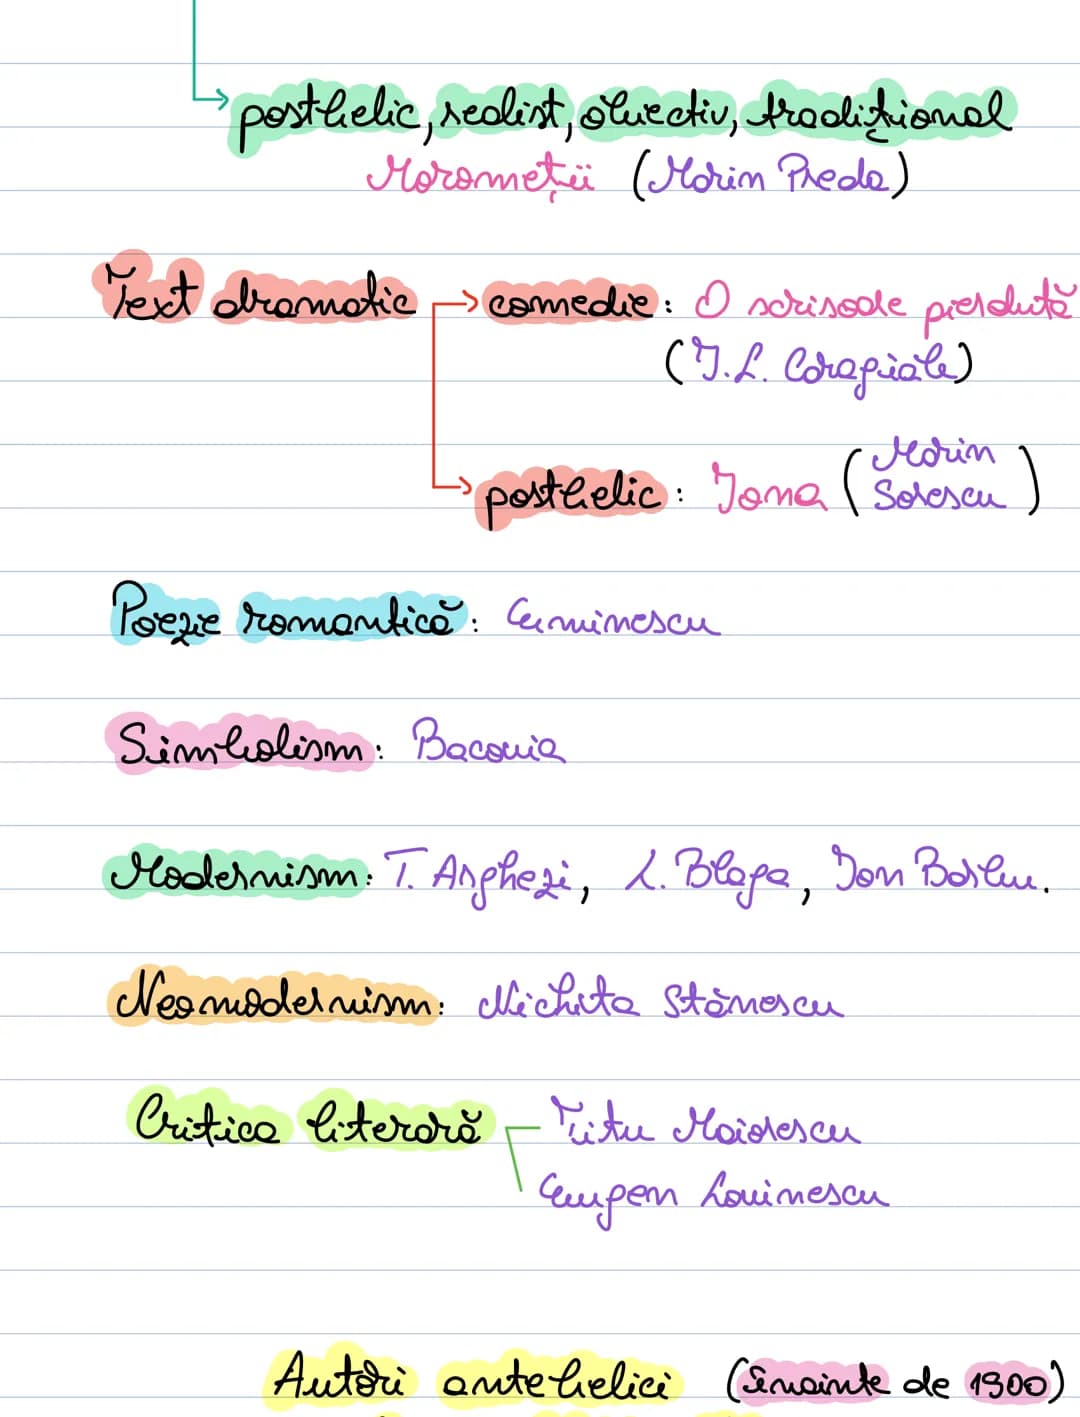 postbelic, realist, obiectiv, tradițional
Moromeții (Marin Preda)
Text dramatic → comedie: O scrisoare pierdută
(I.L. Caragiale)
→ postbelic: Iona (Marin Sorescu)
Poezie romantică: Eminescu
Simbolism: Bacovia
Modernism: T. Arghezi, L. Blaga, Ion Barbu.
Neomodernism: Nichita Stănescu
Critica literară Titu Maiorescu
Eugen Lovinescu
Autori antebelici (înainte de 1900)